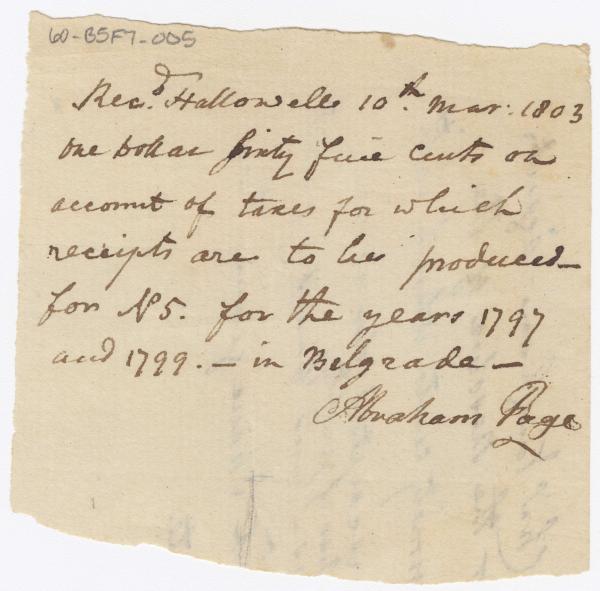 60-B5F7-005
Rec.d Hallowell 10.th Mar. 1803
One Dollar Sixty five cents on
account of taxes for which
receipts are to be produced
for No 5. for the years 1797
and 1799. — in Belgrade —
Abraham Page